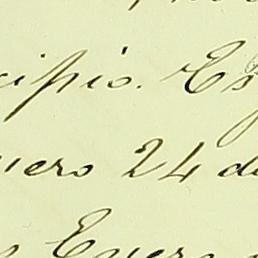 cipio. Es
nero 24 de
Enero